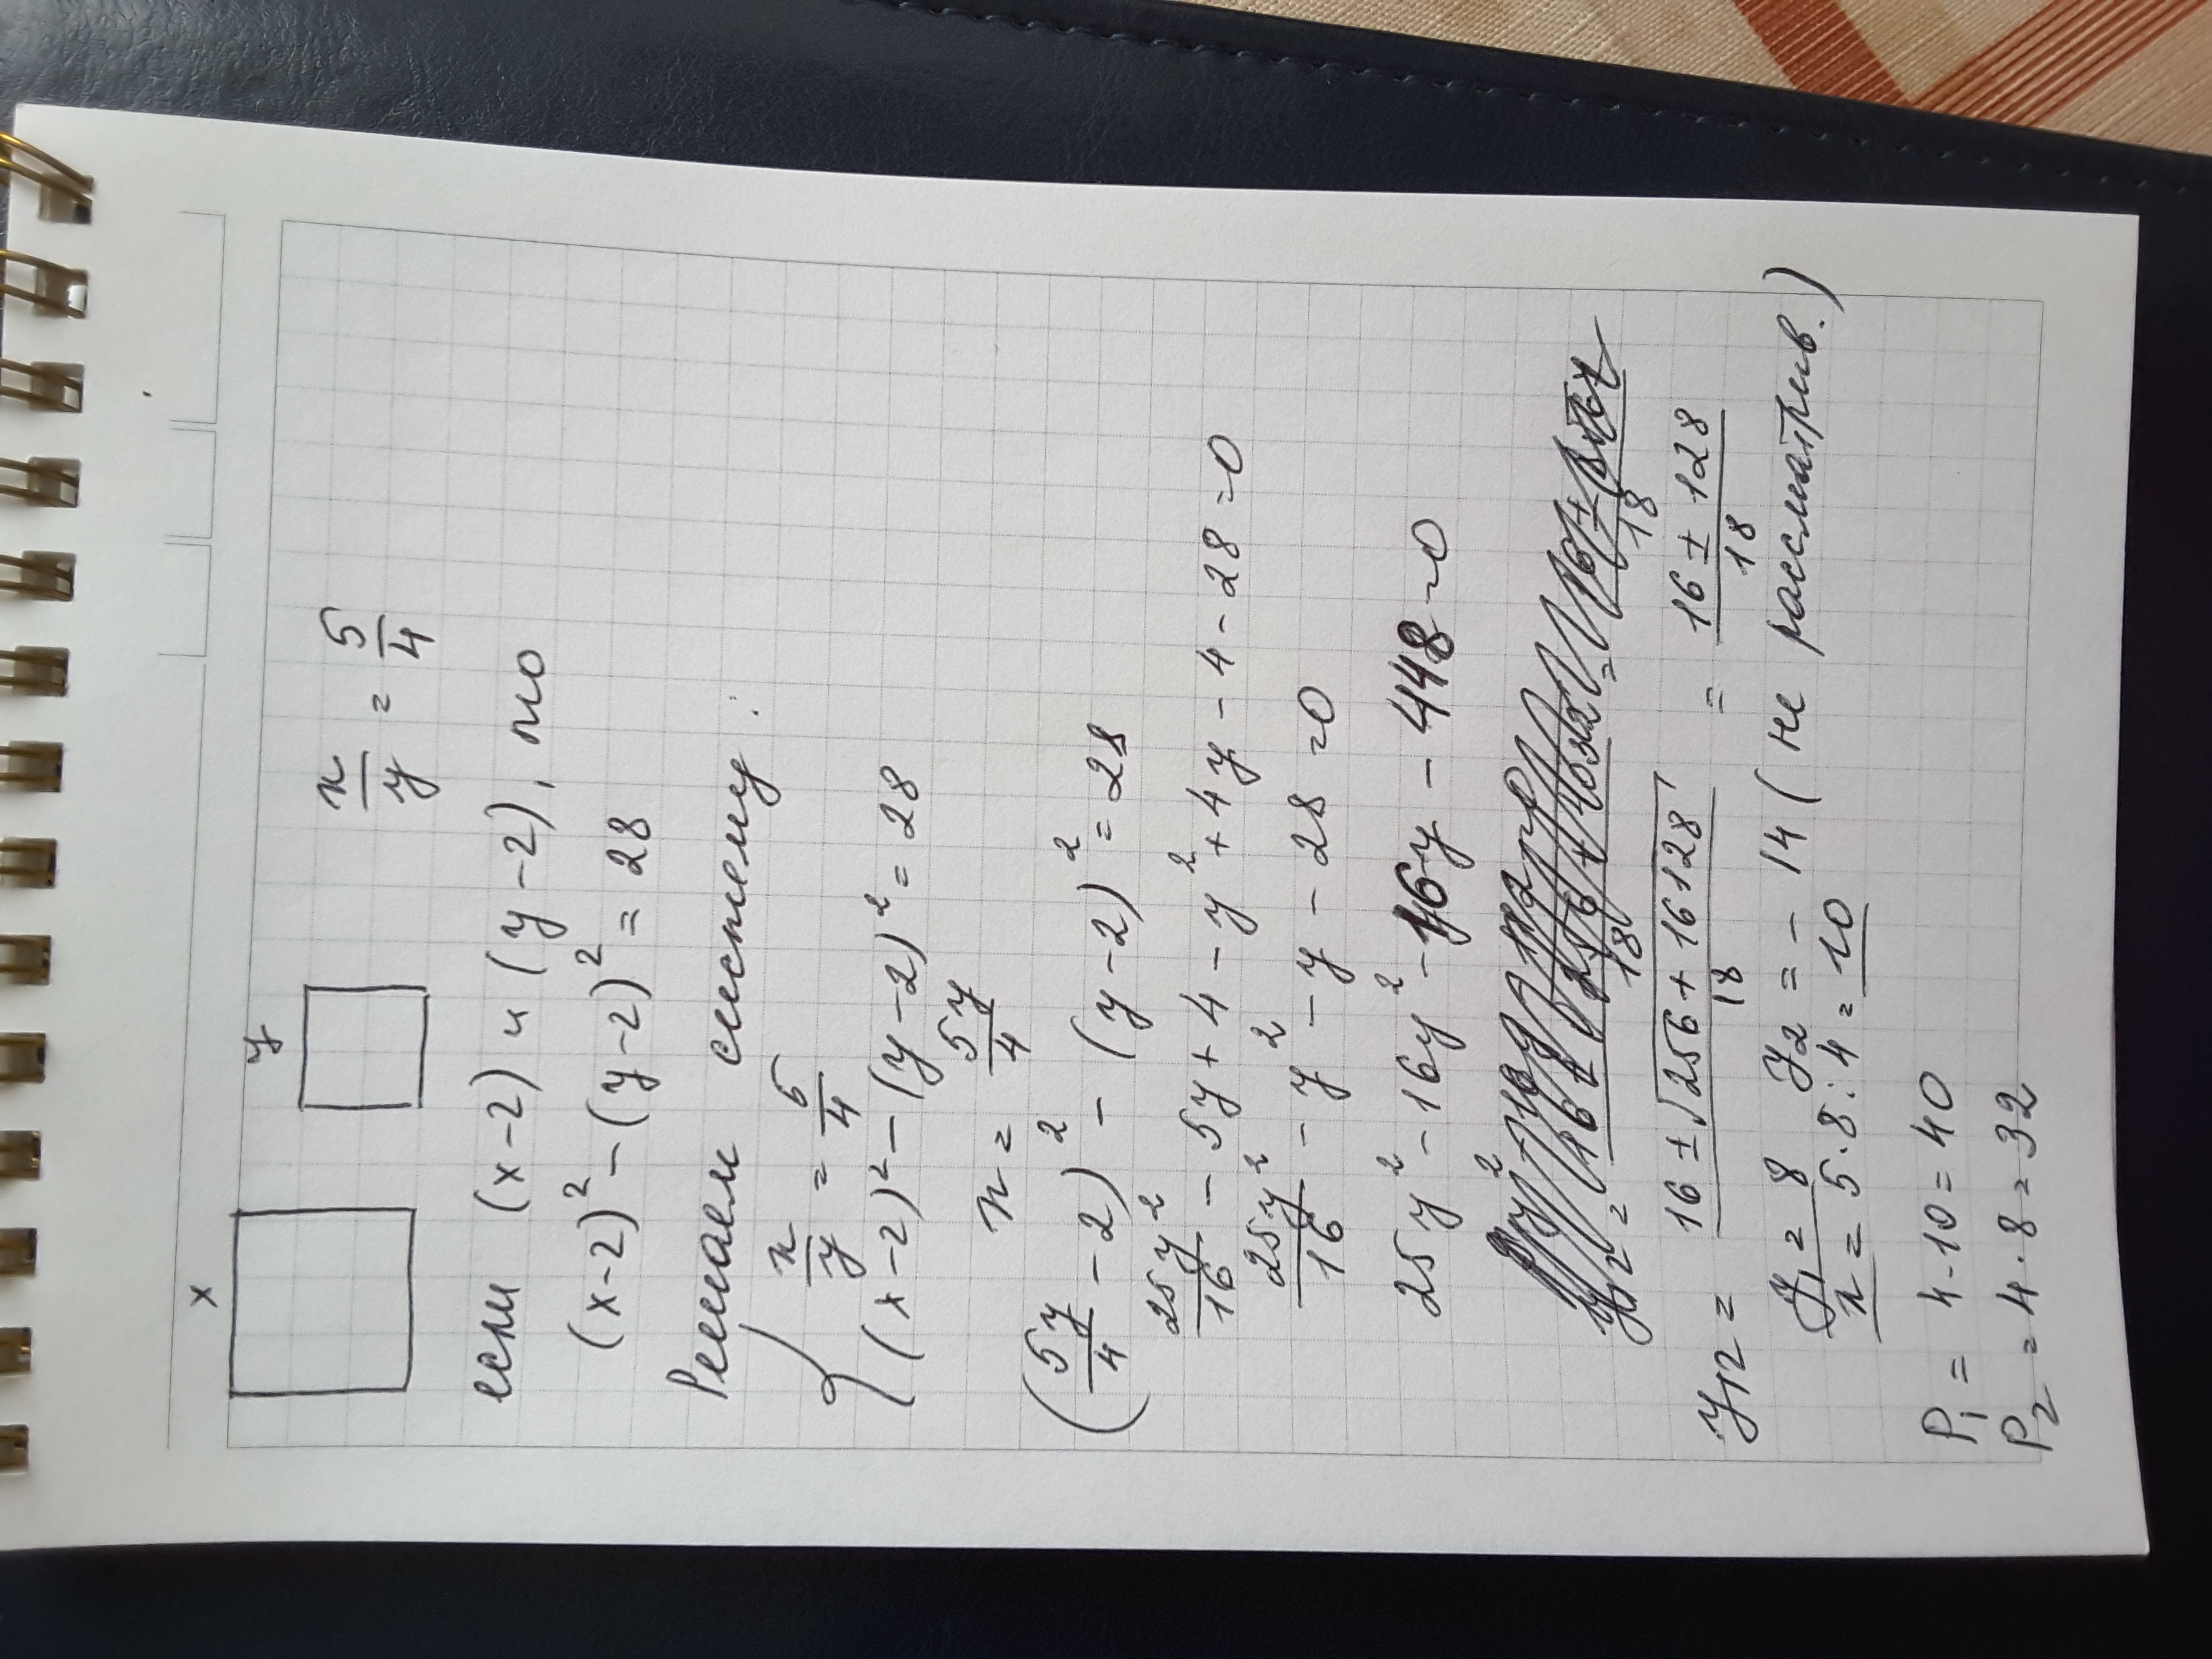 x y x/y = 5/4
если (x-2) и (y-2), то
(x-2)² - (y-2)² = 28
Решаем систему:
{ x/y = 5/4
(x-2)² - (y-2)² = 28
x = 5y/4
(5y/4 - 2)² - (y-2)² = 28
25y²/16 - 5y + 4 - y² + 4y - 4 - 28 = 0
25y²/16 - y² - y - 28 = 0
25y² - 16y² - 16y - 448 = 0
y₁₂ = (16 ± √(256 + 16128))/18 = (16 ± 128)/18
y₁ = 8 y₂ = - 14 (не рассматрив.)
x = 5·8:4 = 10
P₁ = 4·10 = 40
P₂ = 4·8 = 32